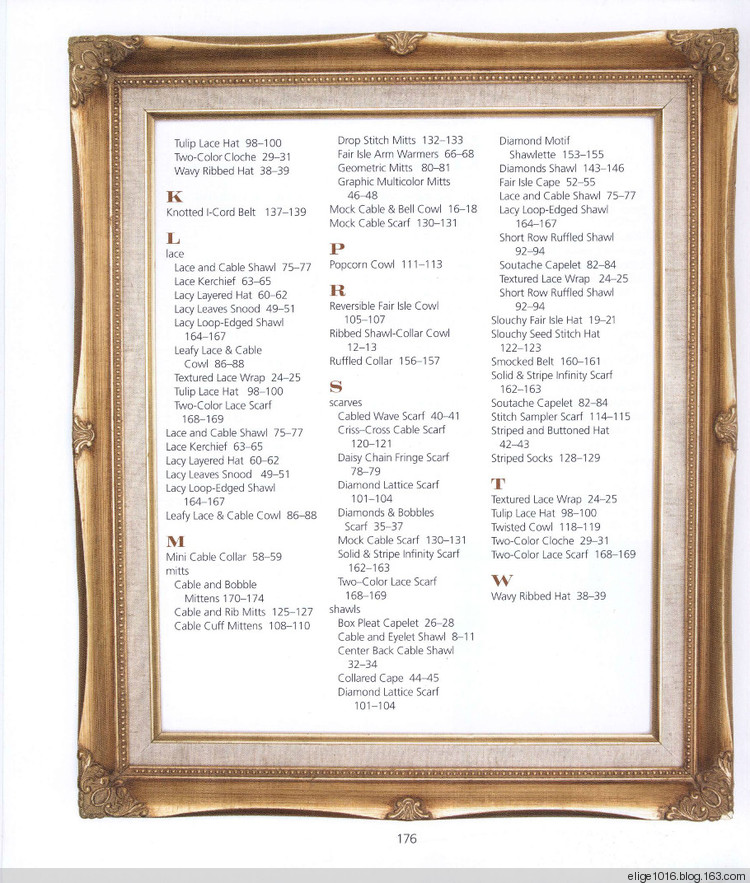 Tulip Lace Hat 98–100
Two-Color Cloche 29–31
Wavy Ribbed Hat 38–39
K
Knotted I-Cord Belt 137–139
L
lace
Lace and Cable Shawl 75–77
Lace Kerchief 63–65
Lacy Layered Hat 60–62
Lacy Leaves Snood 49–51
Lacy Loop-Edged Shawl
164–167
Leafy Lace & Cable
Cowl 86–88
Textured Lace Wrap 24–25
Tulip Lace Hat 98–100
Two-Color Lace Scarf
168–169
Lace and Cable Shawl 75–77
Lace Kerchief 63–65
Lacy Layered Hat 60–62
Lacy Leaves Snood 49–51
Lacy Loop-Edged Shawl
164–167
Leafy Lace & Cable Cowl 86–88
M
Mini Cable Collar 58–59
mitts
Cable and Bobble
Mittens 170–174
Cable and Rib Mitts 125–127
Cable Cuff Mittens 108–110
Drop Stitch Mitts 132–133
Fair Isle Arm Warmers 66–68
Geometric Mitts 80–81
Graphic Multicolor Mitts
46–48
Mock Cable & Bell Cowl 16–18
Mock Cable Scarf 130–131
P
Popcorn Cowl 111–113
R
Reversible Fair Isle Cowl
105–107
Ribbed Shawl-Collar Cowl
12–13
Ruffled Collar 156–157
S
scarves
Cabled Wave Scarf 40–41
Criss–Cross Cable Scarf
120–121
Daisy Chain Fringe Scarf
78–79
Diamond Lattice Scarf
101–104
Diamonds & Bobbles
Scarf 35–37
Mock Cable Scarf 130–131
Solid & Stripe Infinity Scarf
162–163
Two–Color Lace Scarf
168–169
shawls
Box Pleat Capelet 26–28
Cable and Eyelet Shawl 8–11
Center Back Cable Shawl
32–34
Collared Cape 44–45
Diamond Lattice Scarf
101–104
Diamond Motif
Shawlette 153–155
Diamonds Shawl 143–146
Fair Isle Cape 52–55
Lace and Cable Shawl 75–77
Lacy Loop-Edged Shawl
164–167
Short Row Ruffled Shawl
92–94
Soutache Capelet 82–84
Textured Lace Wrap 24–25
Short Row Ruffled Shawl
92–94
Slouchy Fair Isle Hat 19–21
Slouchy Seed Stitch Hat
122–123
Smocked Belt 160–161
Solid & Stripe Infinity Scarf
162–163
Soutache Capelet 82–84
Stitch Sampler Scarf 114–115
Striped and Buttoned Hat
42–43
Striped Socks 128–129
T
Textured Lace Wrap 24–25
Tulip Lace Hat 98–100
Twisted Cowl 118–119
Two-Color Cloche 29–31
Two-Color Lace Scarf 168–169
W
Wavy Ribbed Hat 38–39
176
elige1016.blog.163.com